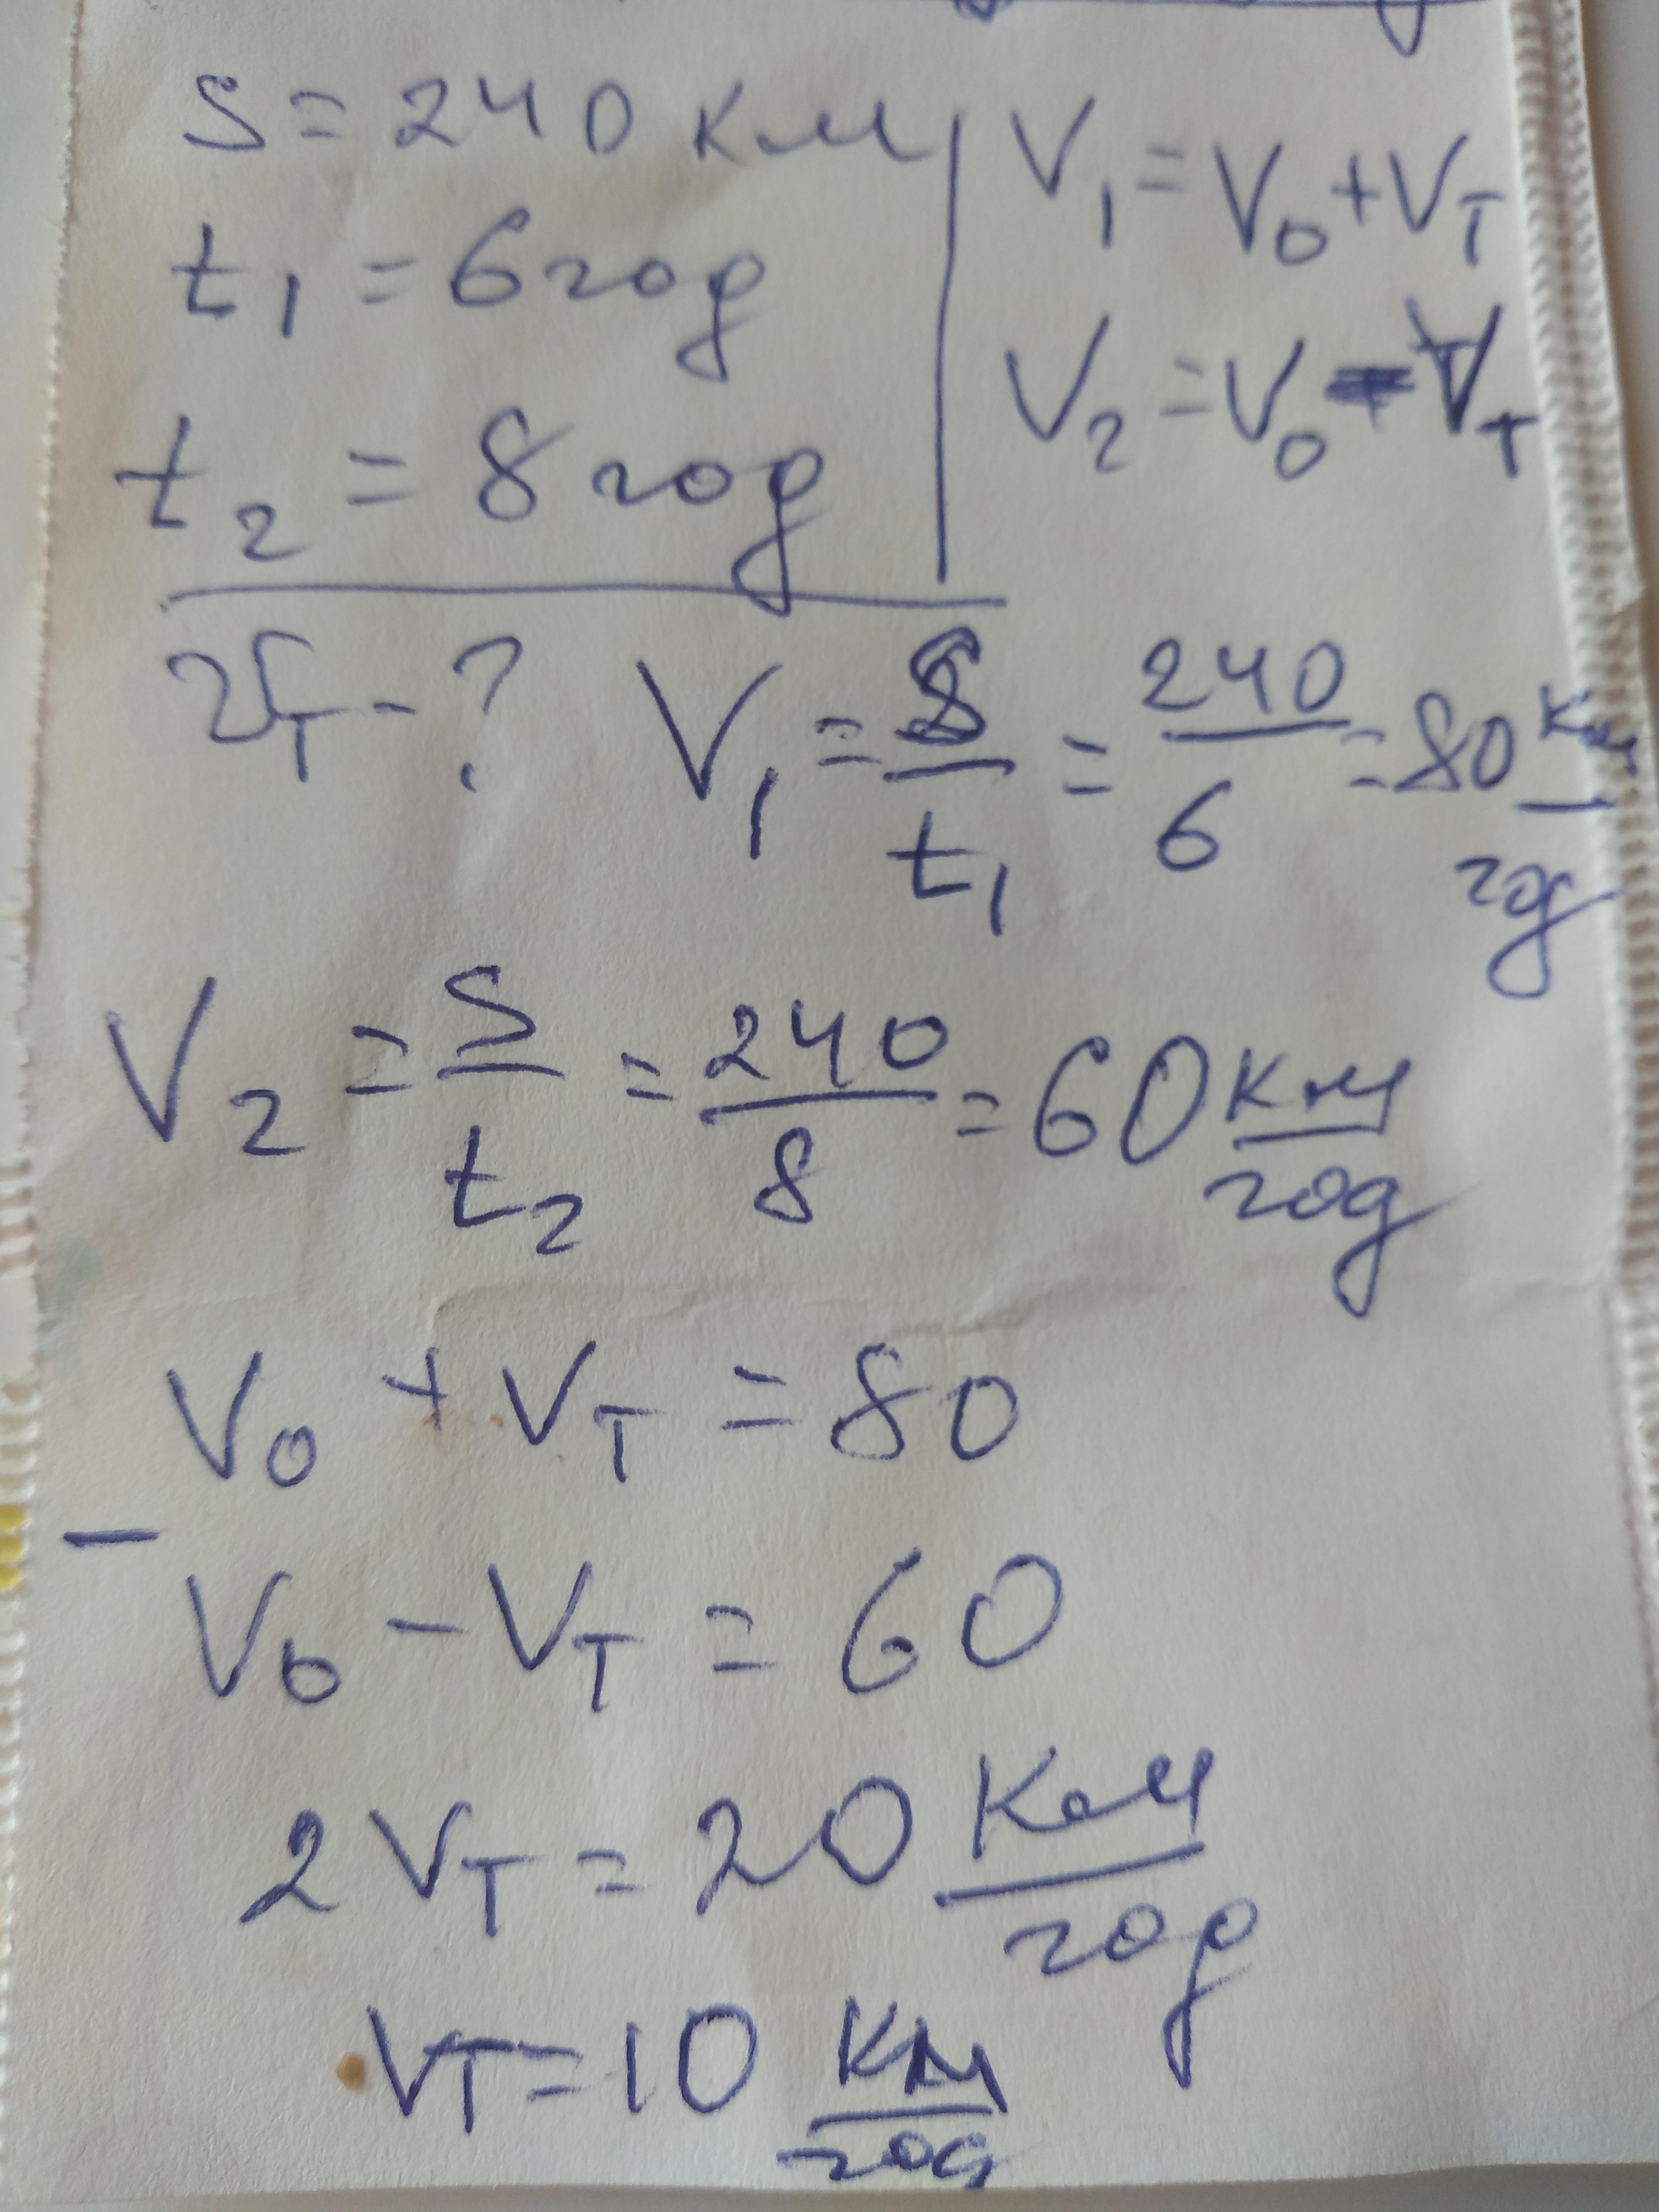 S = 240 км
t₁ = 6 год
t₂ = 8 год
V₁ = V₀ + Vт
V₂ = V₀ - Vт
Vт - ?
V₁ = S/t₁ = 240/6 = 80 км/год
V₂ = S/t₂ = 240/8 = 60 км/год
V₀ + Vт = 80
–
V₀ - Vт = 60
2Vт = 20 км/год
Vт = 10 км/год